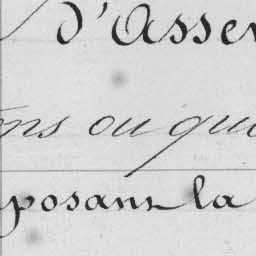 d'Asse
ns ou qui
posant la